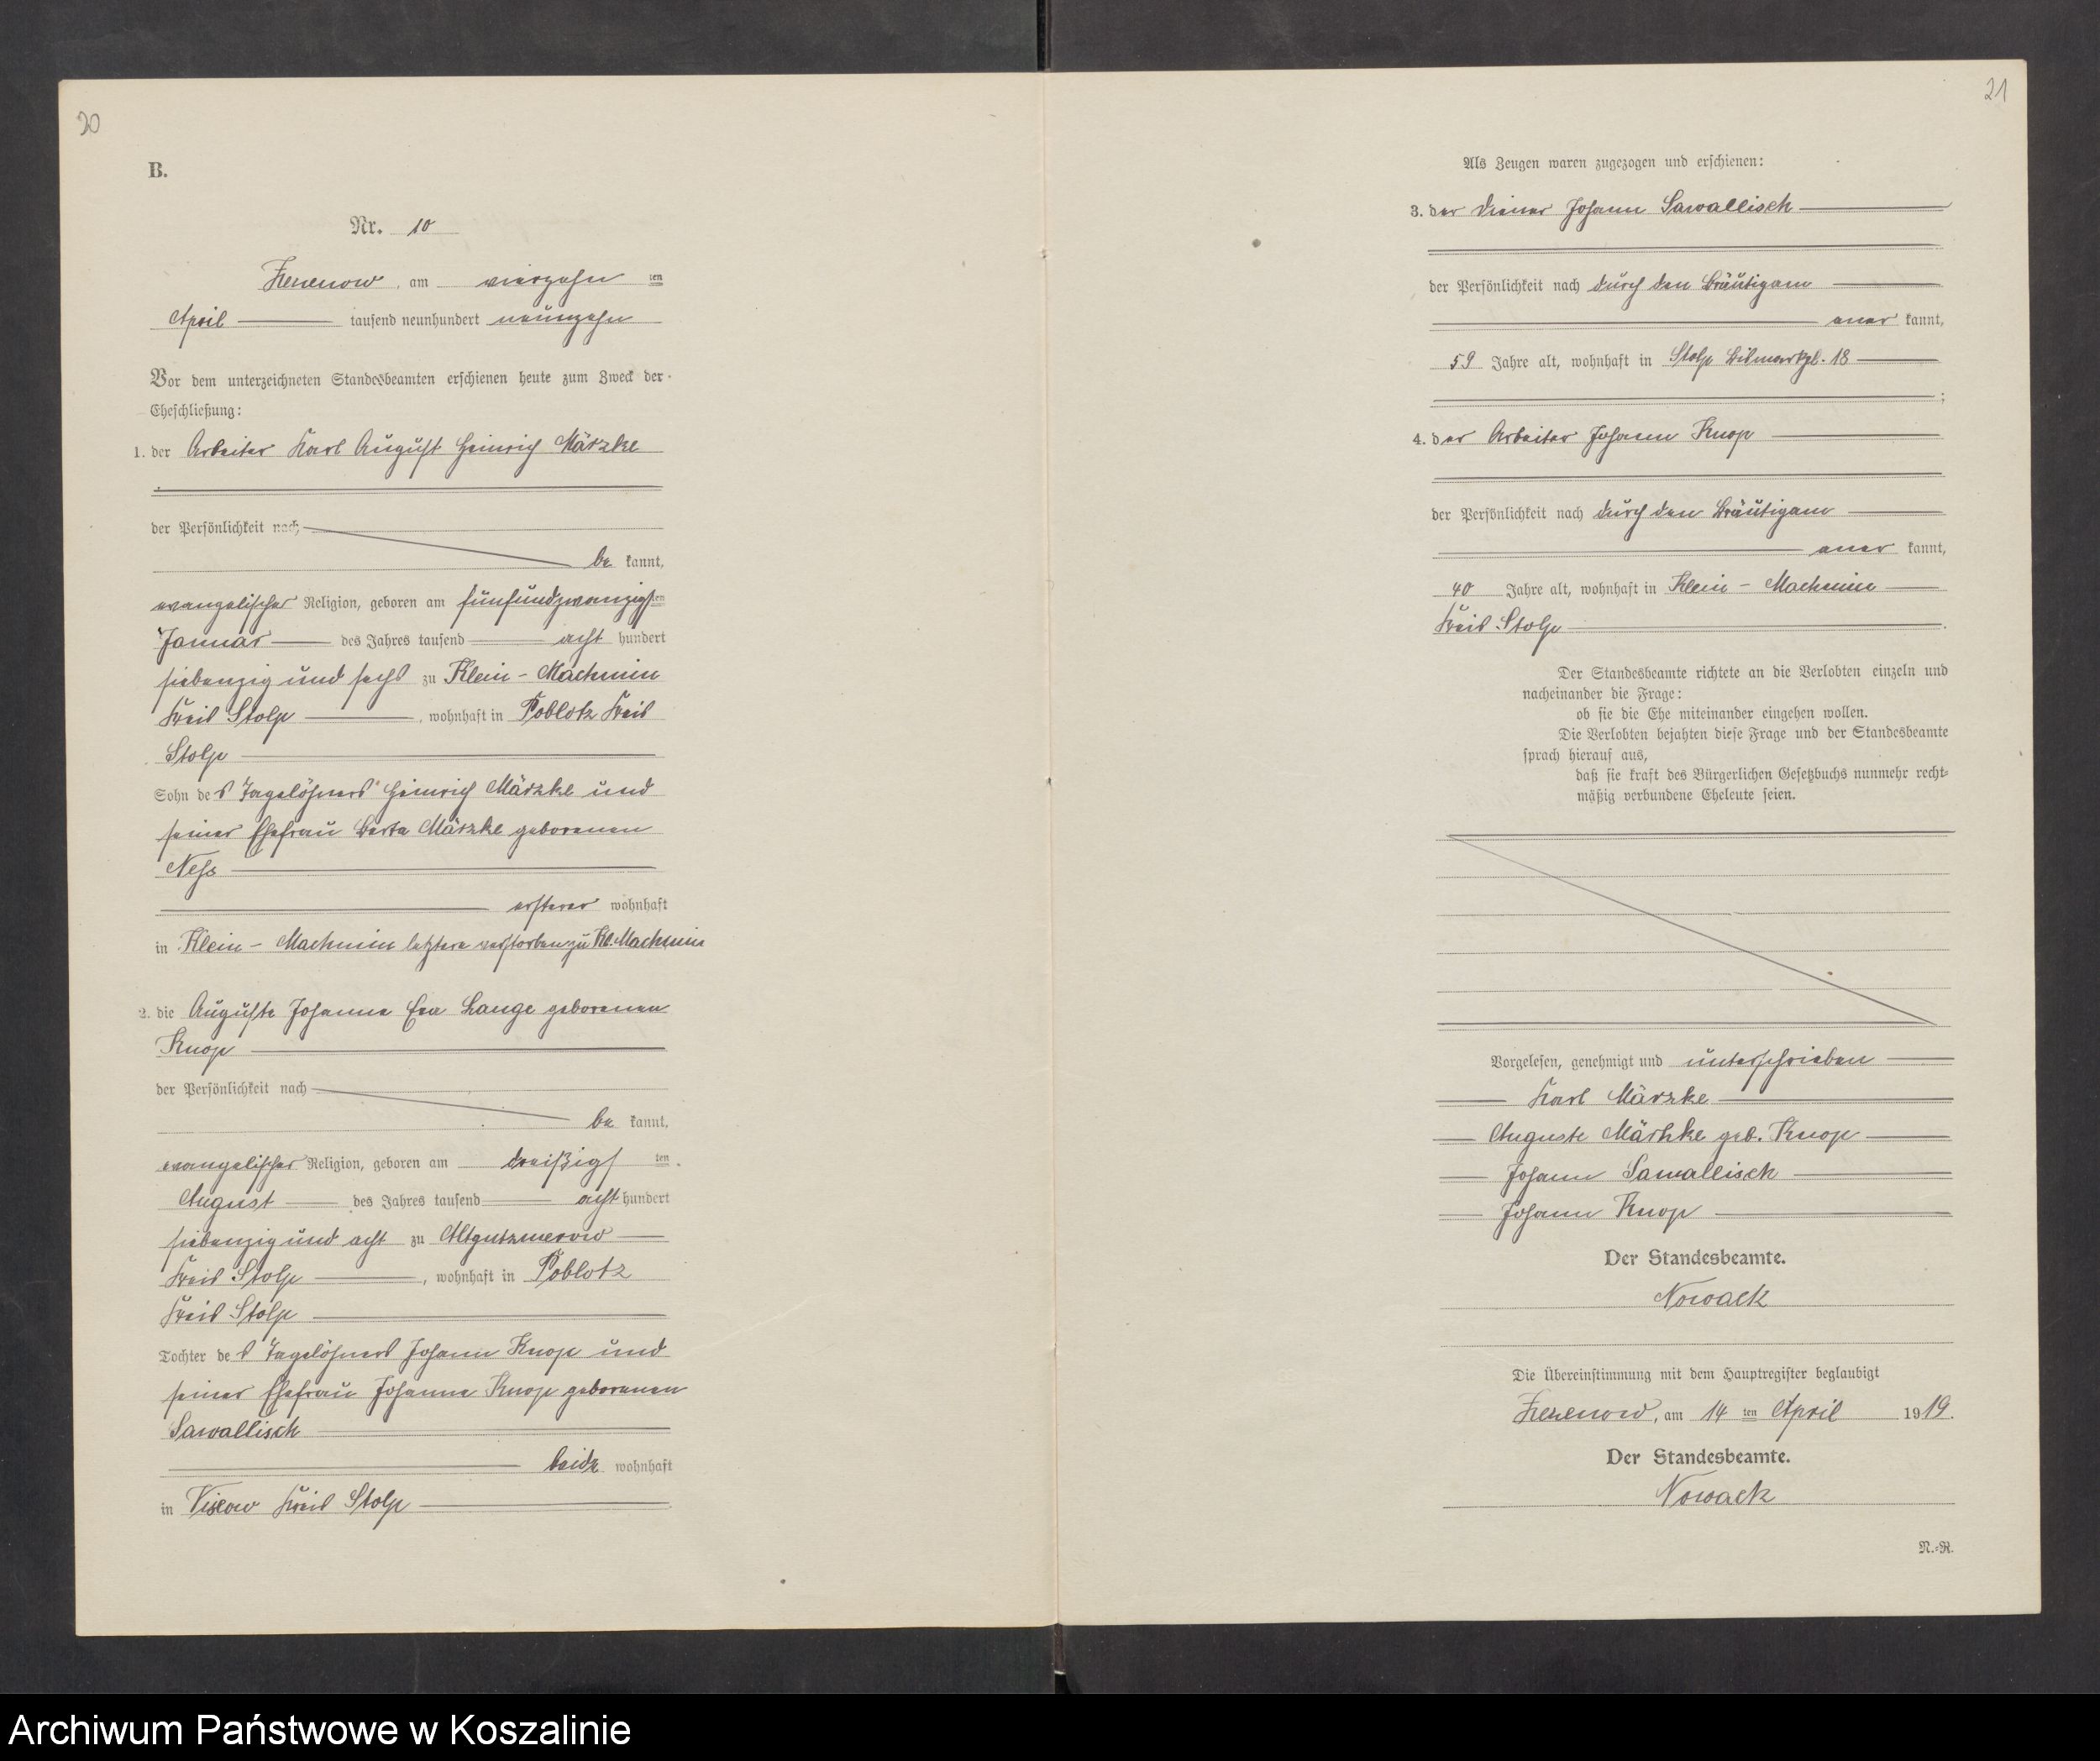 20
B.
Nr. 10
Zezenow, am vierzehn ten
April tausend neunhundert neunzehn
Vor dem unterzeichneten Standesbeamten erschienen heute zum Zweck der
Eheschließung:
1. der Arbeiter Karl August Heinrich Märzke
der Persönlichkeit nach
be kannt,
evangelischer Religion, geboren am fünfundzwanzigsten
Januar des Jahres tausend acht hundert
siebenzig und sechs zu Klein - Machmin
Kreis Stolp, wohnhaft in Poblotz Kreis
Stolp
Sohn des Tagelöhners Heinrich Märzke und
seiner Ehefrau Berta Märzke geborenen
Ness
ersterer wohnhaft
in Klein - Machmin letztere verstorben zu Kl. Machmin
2. die Auguste Johanna Eva Lange geborenen
Knop
der Persönlichkeit nach
be kannt,
evangelischer Religion, geboren am dreißigsten
August des Jahres tausend acht hundert
siebenzig und acht zu Altgutzmerow
Kreis Stolp, wohnhaft in Poblotz
Kreis Stolp
Tochter des Tagelöhners Johann Knop und
seiner Ehefrau Johanna Knop geborenen
Sawallisch
beide wohnhaft
in Vixow Kreis Stolp
21
Als Zeugen waren zugezogen und erschienen:
3. der Diener Johann Sawallisch
der Persönlichkeit nach durch den Bräutigam
aner kannt,
59 Jahre alt, wohnhaft in Stolp Bismarkpl. 18
;
4. der Arbeiter Johann Knop
der Persönlichkeit nach durch den Bräutigam
aner kannt,
40 Jahre alt, wohnhaft in Klein - Machmin
Kreis Stolp.
Der Standesbeamte richtete an die Verlobten einzeln und
nacheinander die Frage:
ob sie die Ehe miteinander eingehen wollen.
Die Verlobten bejahten diese Frage und der Standesbeamte
sprach hierauf aus,
daß sie kraft des Bürgerlichen Gesetzbuchs nunmehr recht-
mäßig verbundene Eheleute seien.
Vorgelesen, genehmigt und unterschrieben
Karl Märzke
Auguste Märzke geb. Knop
Johann Sawallisch
Johann Knop
Der Standesbeamte.
Nowack
Die Übereinstimmung mit dem Hauptregister beglaubigt
Zezenow, am 14 ten April 1919.
Der Standesbeamte.
Nowack
N.-R.
Archiwum Państwowe w Koszalinie